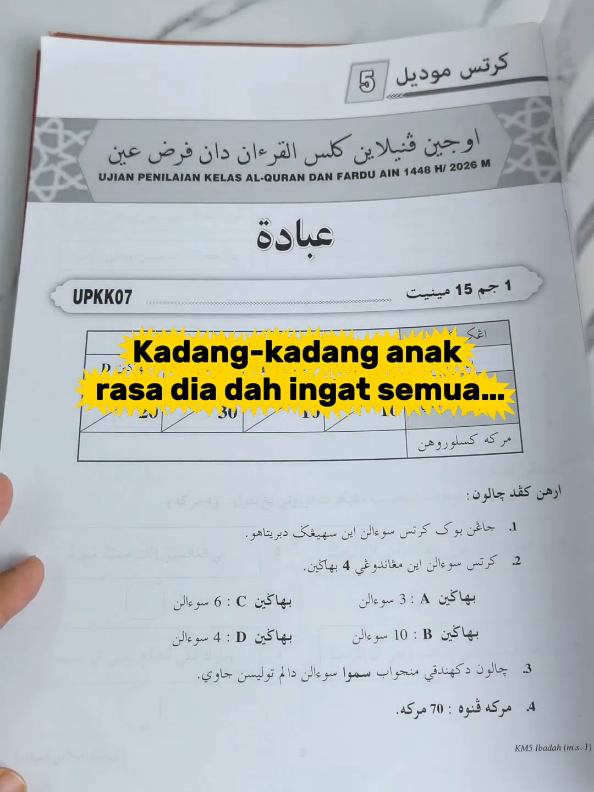 کرتس موديل 5
اوجين ڤنيلاين کلس القرءان دان فرض عين
UJIAN PENILAIAN KELAS AL-QURAN DAN FARDU AIN 1448 H/ 2026 M
عبادة
1 جم 15 مينيت UPKK07
Kadang-kadang anak
rasa dia dah ingat semua...
20 30
مرکه کسلوروهن
ارهن کڤد چالون:
1. جاڠن بوک کرتس سوءالن اين سهيڠݢ دبريتاهو.
2. کرتس سوءالن اين مڠاندوڠي 4 بهاݢين.
بهاݢين A : 3 سوءالن بهاݢين C : 6 سوءالن
بهاݢين B : 10 سوءالن بهاݢين D : 4 سوءالن
3. چالون دکهندقي منجواب سموا سوءالن دالم توليسن جاوي.
4. مرکه ڤنوه : 70 مرکه.
KM5 Ibadah (m.s. 1)